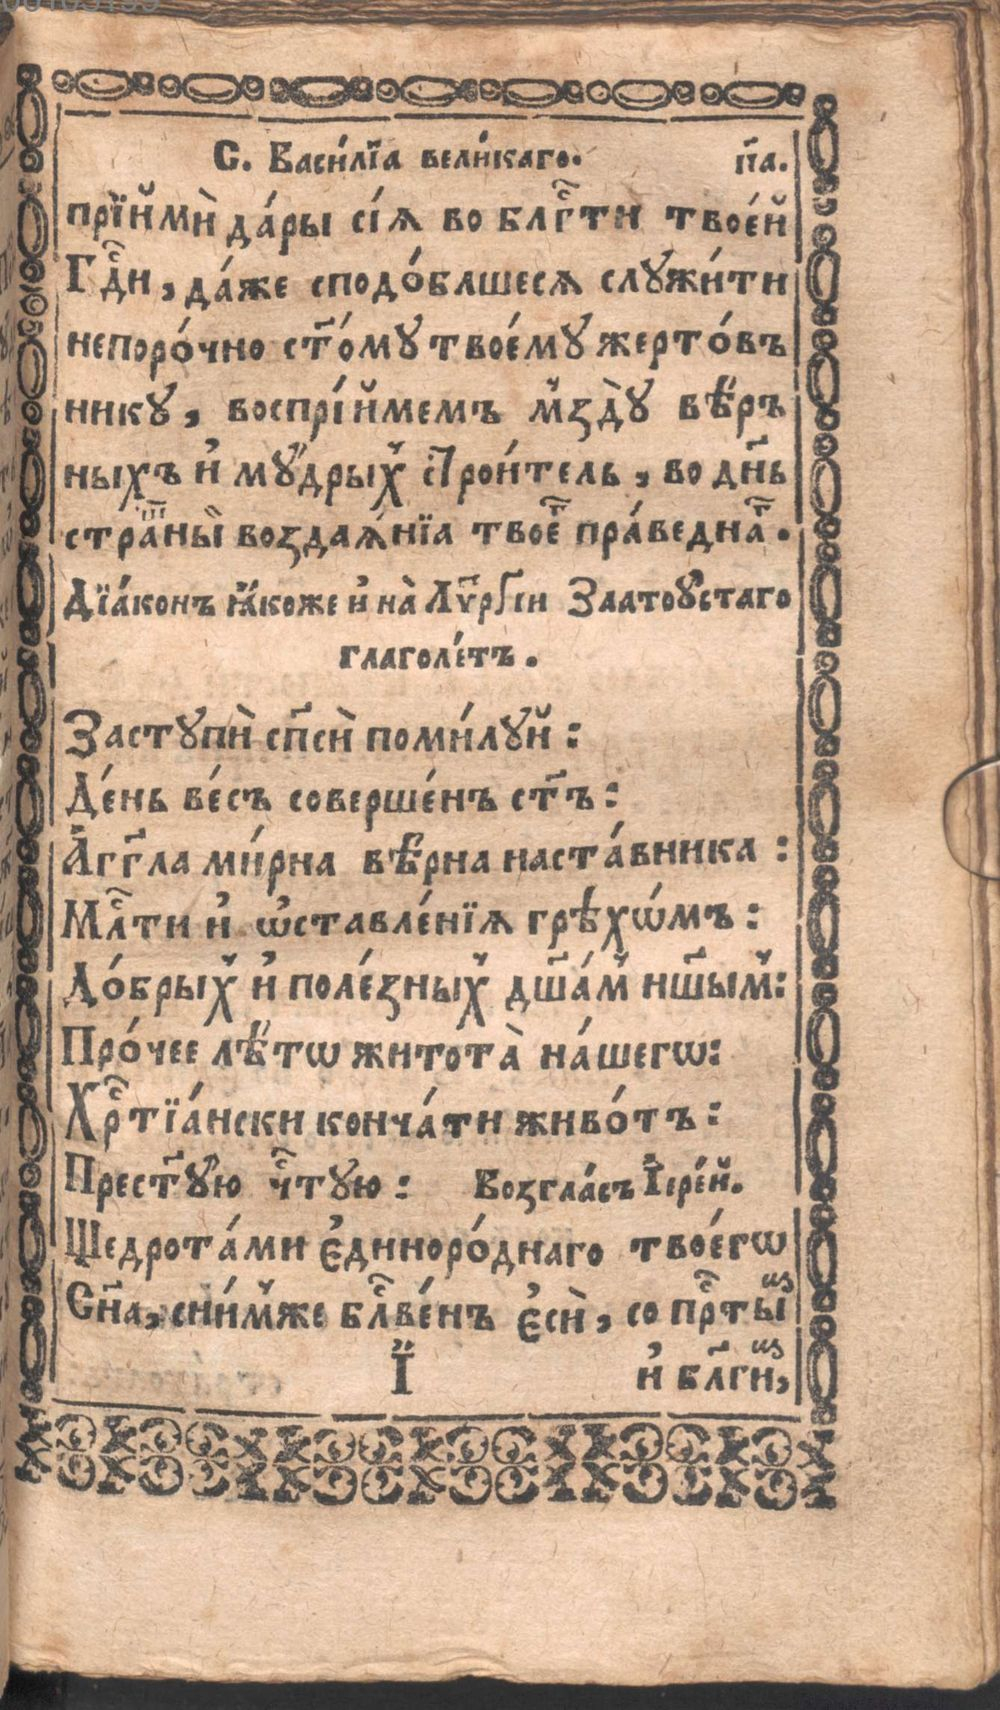 С. Васи́лїа вели́каго. п҃а.
прїйми̂ да́ры сі́ѧ во блгⷭ҇ти твое́й
Гдⷭ҇и, да́же сподо́блшесѧ служи́ти
непоро́чно ст҃о́му твое́му жерто́въ
нику, воспрі́ймемъ мздꙋ̀ вѣ́ръ
ныхъ и҆ мꙋ́дрых строи́тель, во дн҃ь
стра́шны̀ воздаѧ́нїа твоеⷢ҇ пра́веднаⷢ҇.
Дїа́конъ ꙗ҆́коже и҆ на̀ Лѵ҃ргїи Заатоꙋ́стаго
глаголе́тъ.
Застꙋпи̂ сп҃си̂ поми́лꙋй:
Де́нь ве́съ соверше́нъ ст҃ъ:
А҆́гг҃ла ми́рна вѣ́рна наста́вника:
Млⷭ҇ти и҆ ѡ҆ставле́нїѧ грѣхѡ́мъ:
До́брых и҆ поле́зных дш҃а́м нш҃ым:
Про́чее лѣ́тѡ житота̀ на́шегѡ:
Хрⷭ҇тїа́нски конча́ти живо́тъ:
Прест҃ꙋ́ю чⷭ҇тꙋю: Возгла́съ І҆ере́й.
Щедрота́ми є҆диноро́днаго твое́гѡ
Сн҃а, сни́мже блⷭ҇ве́нъ є҆си̂, со прⷭ҇ты́мⸯ
І҆҃ и҆ бл҃ги́мⸯ,